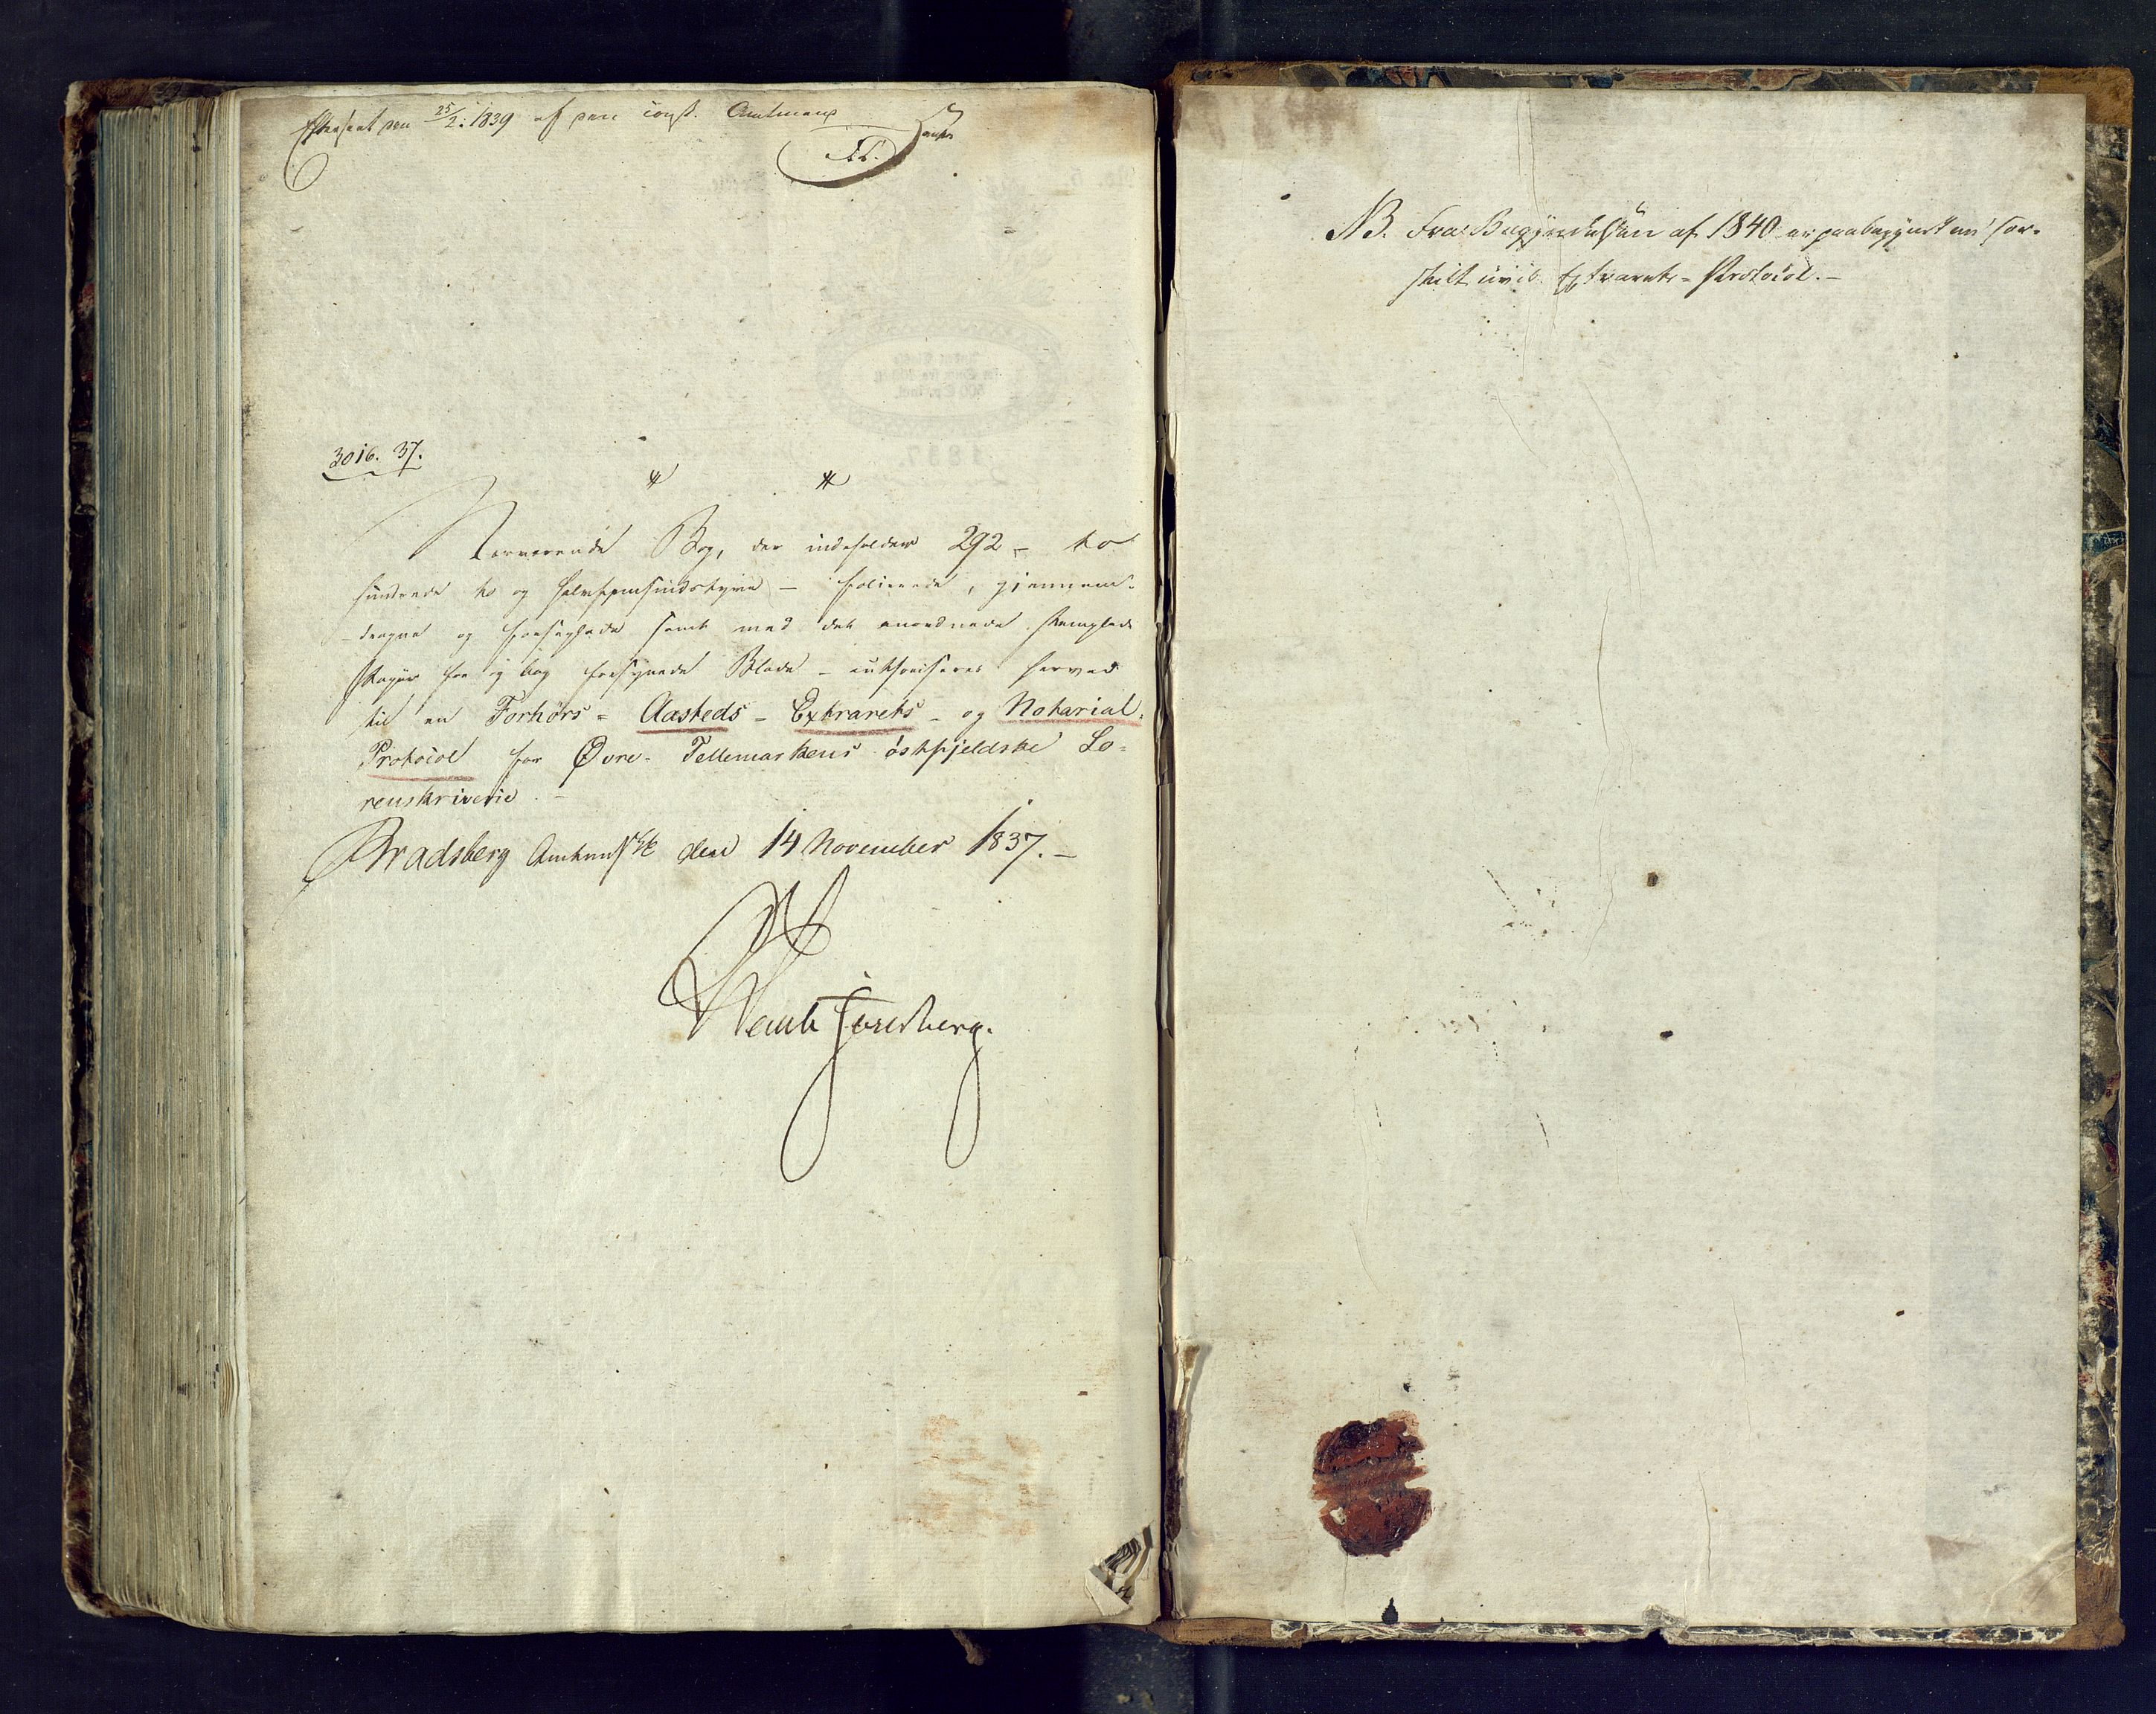 Efterseet den 25/2: 1839 af den const. Amtmand
3016. 37.
Nærværende Bog, der indeholder 292 - to
hundrede to og halvfemsindstyve - folierede, gjennem-
-dragne og forseglede samt med det anordnede stemplede
Papir for og bag forsynede Blade - authoriseres herved
til en Forhörs - Aasteds - Extrarets - og Notarial-
Protocol for Øvre - Tellemarkens östfjeldske So-
renskriverie. -
Bradsberg Amtmsk den 14 November 1837. -
NB. Fra Begyndelsen af 1840 er paabegyndt en sær-
skilt civil Extrarets-Protocol. -